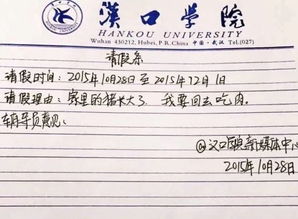 漢口学院
HANKOU UNIVERSITY
Wuhan 430212, Hubei, P.R. China 中国·武汉 Tel: (027)
请假条
请假时间: 2015年10月28日 至 2015年12月1日
请假理由: 家里的猪长大了 我要回去吃肉.
辅导员意见:
@汉口学院新媒体中心
2015年10月28日